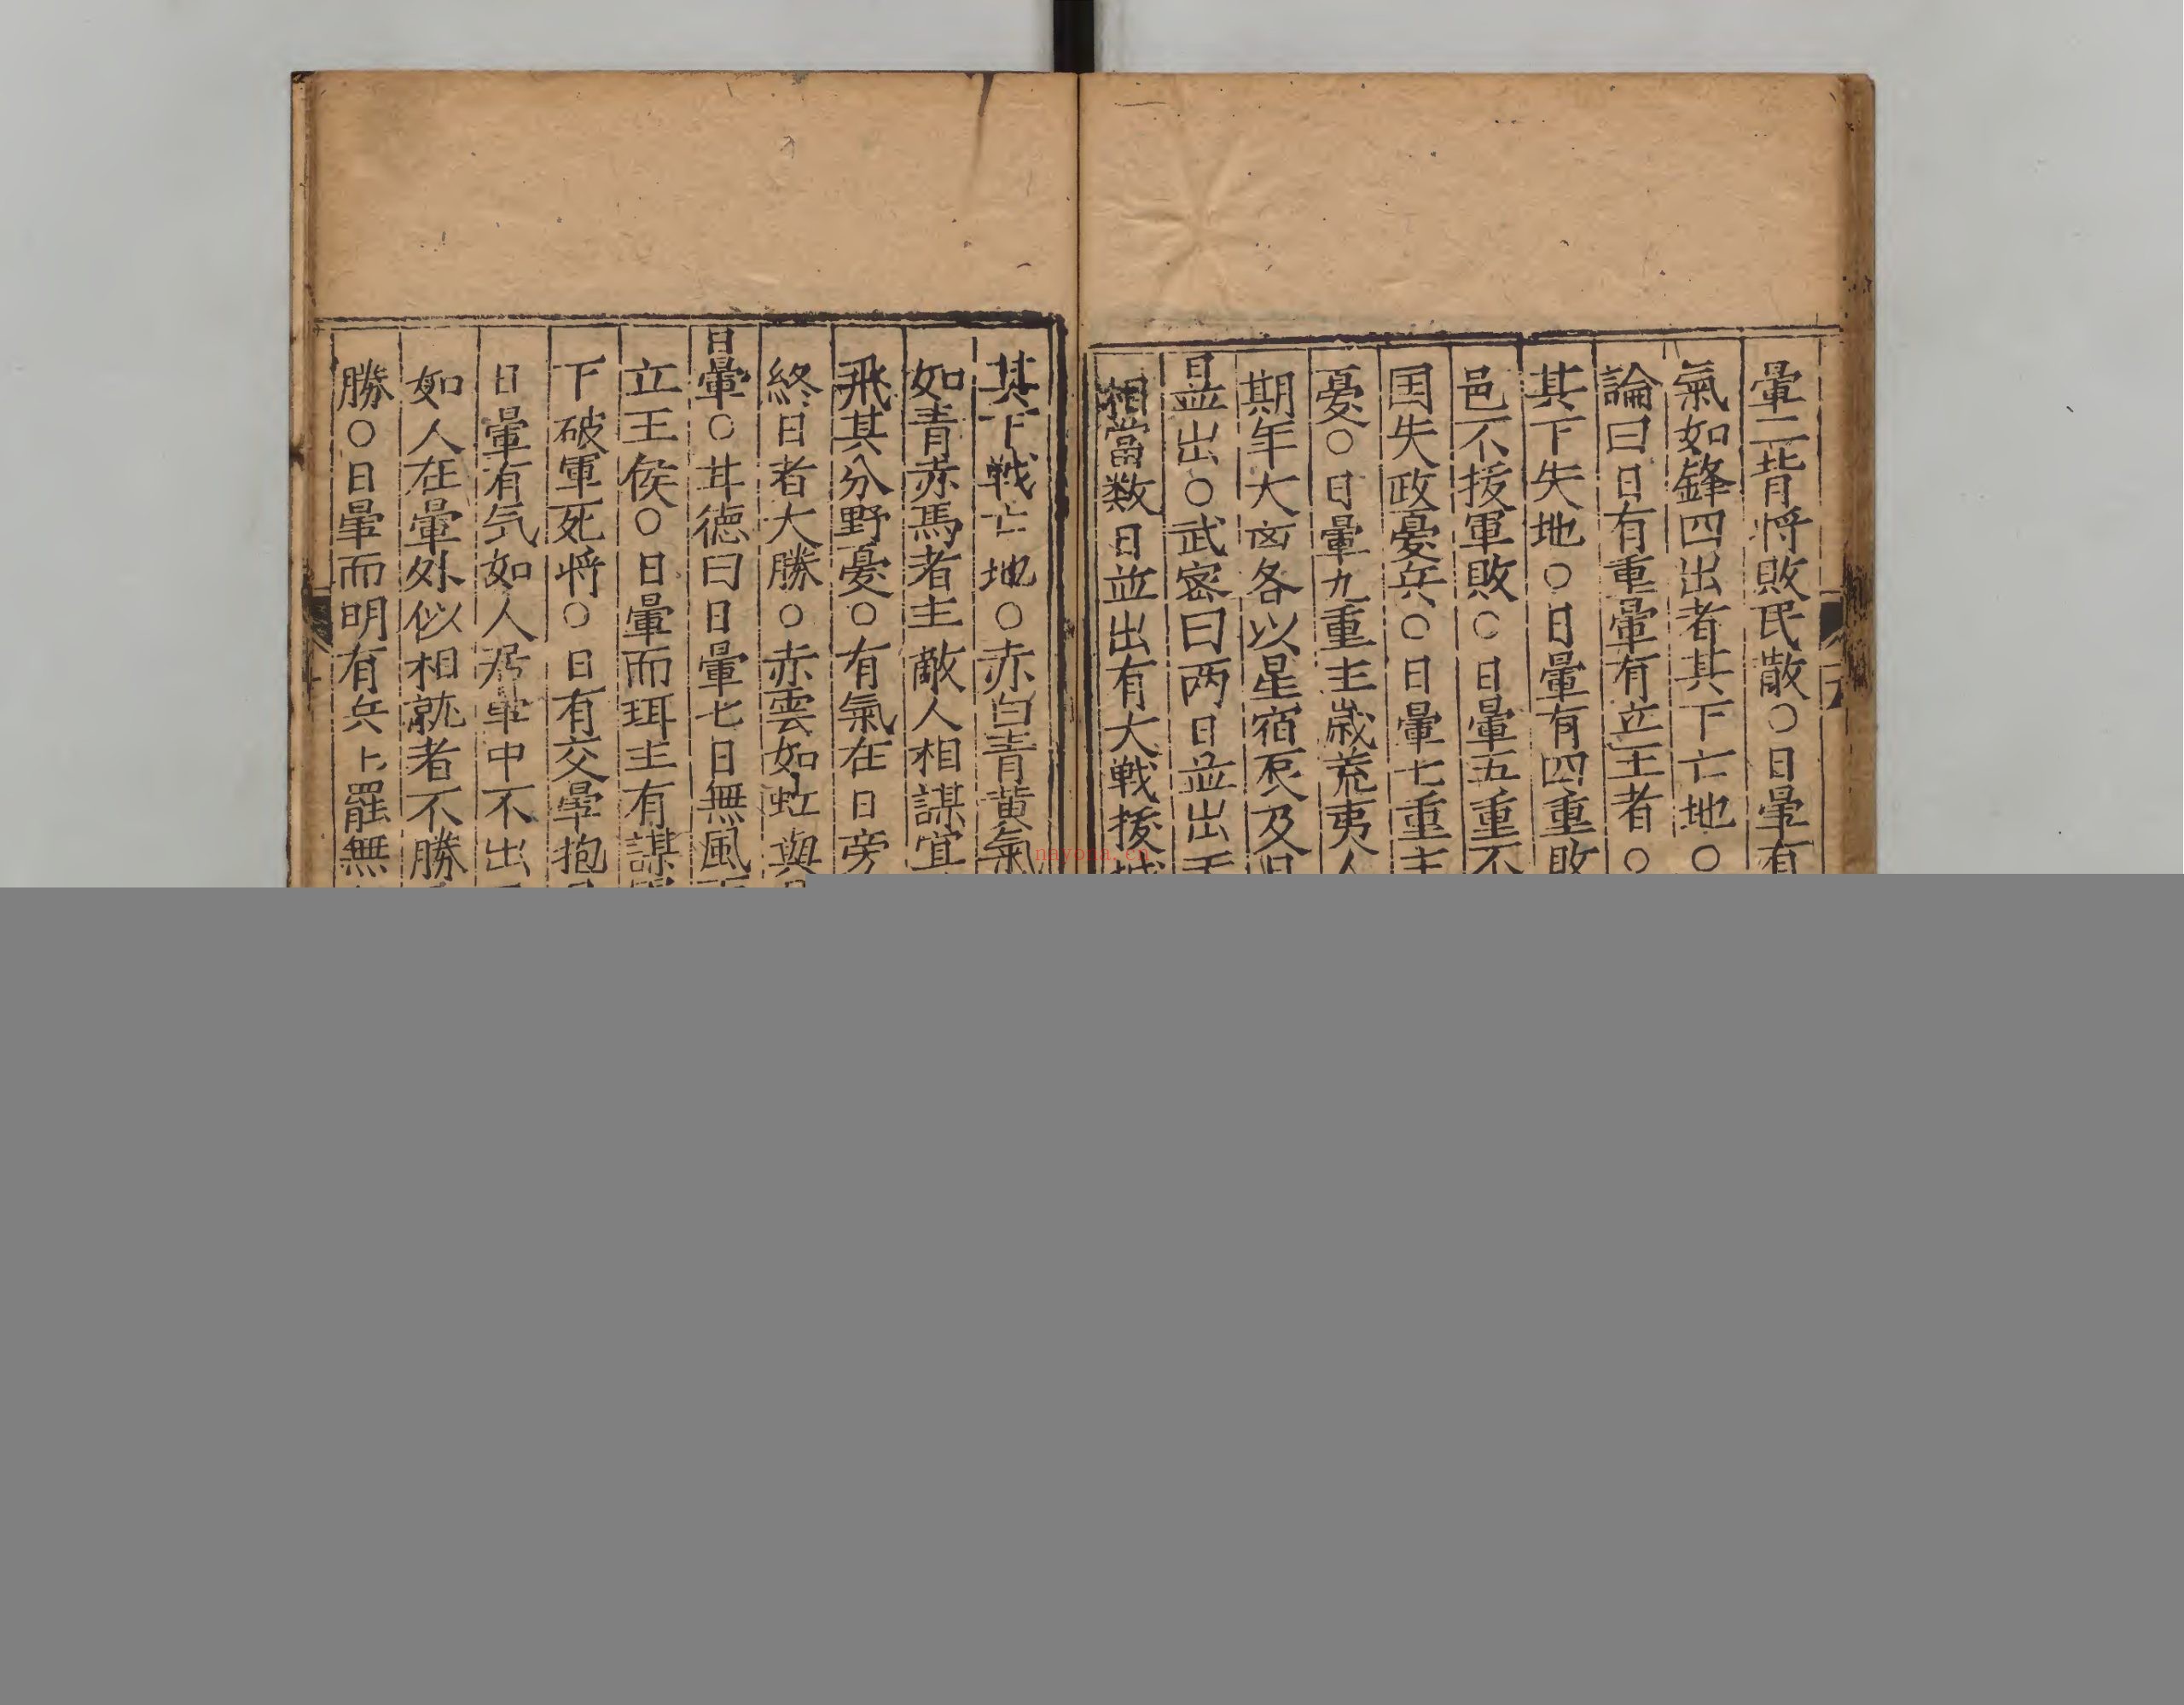 暈二背将敗民散○日暈有
氣如鋒四出者其下亡地○
論曰日有重暈有立王者○
其下失地○日暈有四重敗
邑不㧞軍敗○日暈五重不
国失政憂兵○日暈七重主
憂○日暈九重主歳荒夷人
期年大凶各以星宿居及
日並出○武密曰两日並出
相當数日並出有大戦㧞城
其下戦亡地○赤白青黄氣
如青赤馬者主敵人相謀宜
飛其分野憂○有氣在日旁
終日者大勝○赤雲如虹與日
日暈○甘徳曰日暈七日無風
立王侯○日暈而珥主有謀
下破軍死将○日有交暈抱
日暈有気如人居暈中不出
如人在暈外似相就者不勝
勝○日暈而明有兵兵罷無
nayona.cn